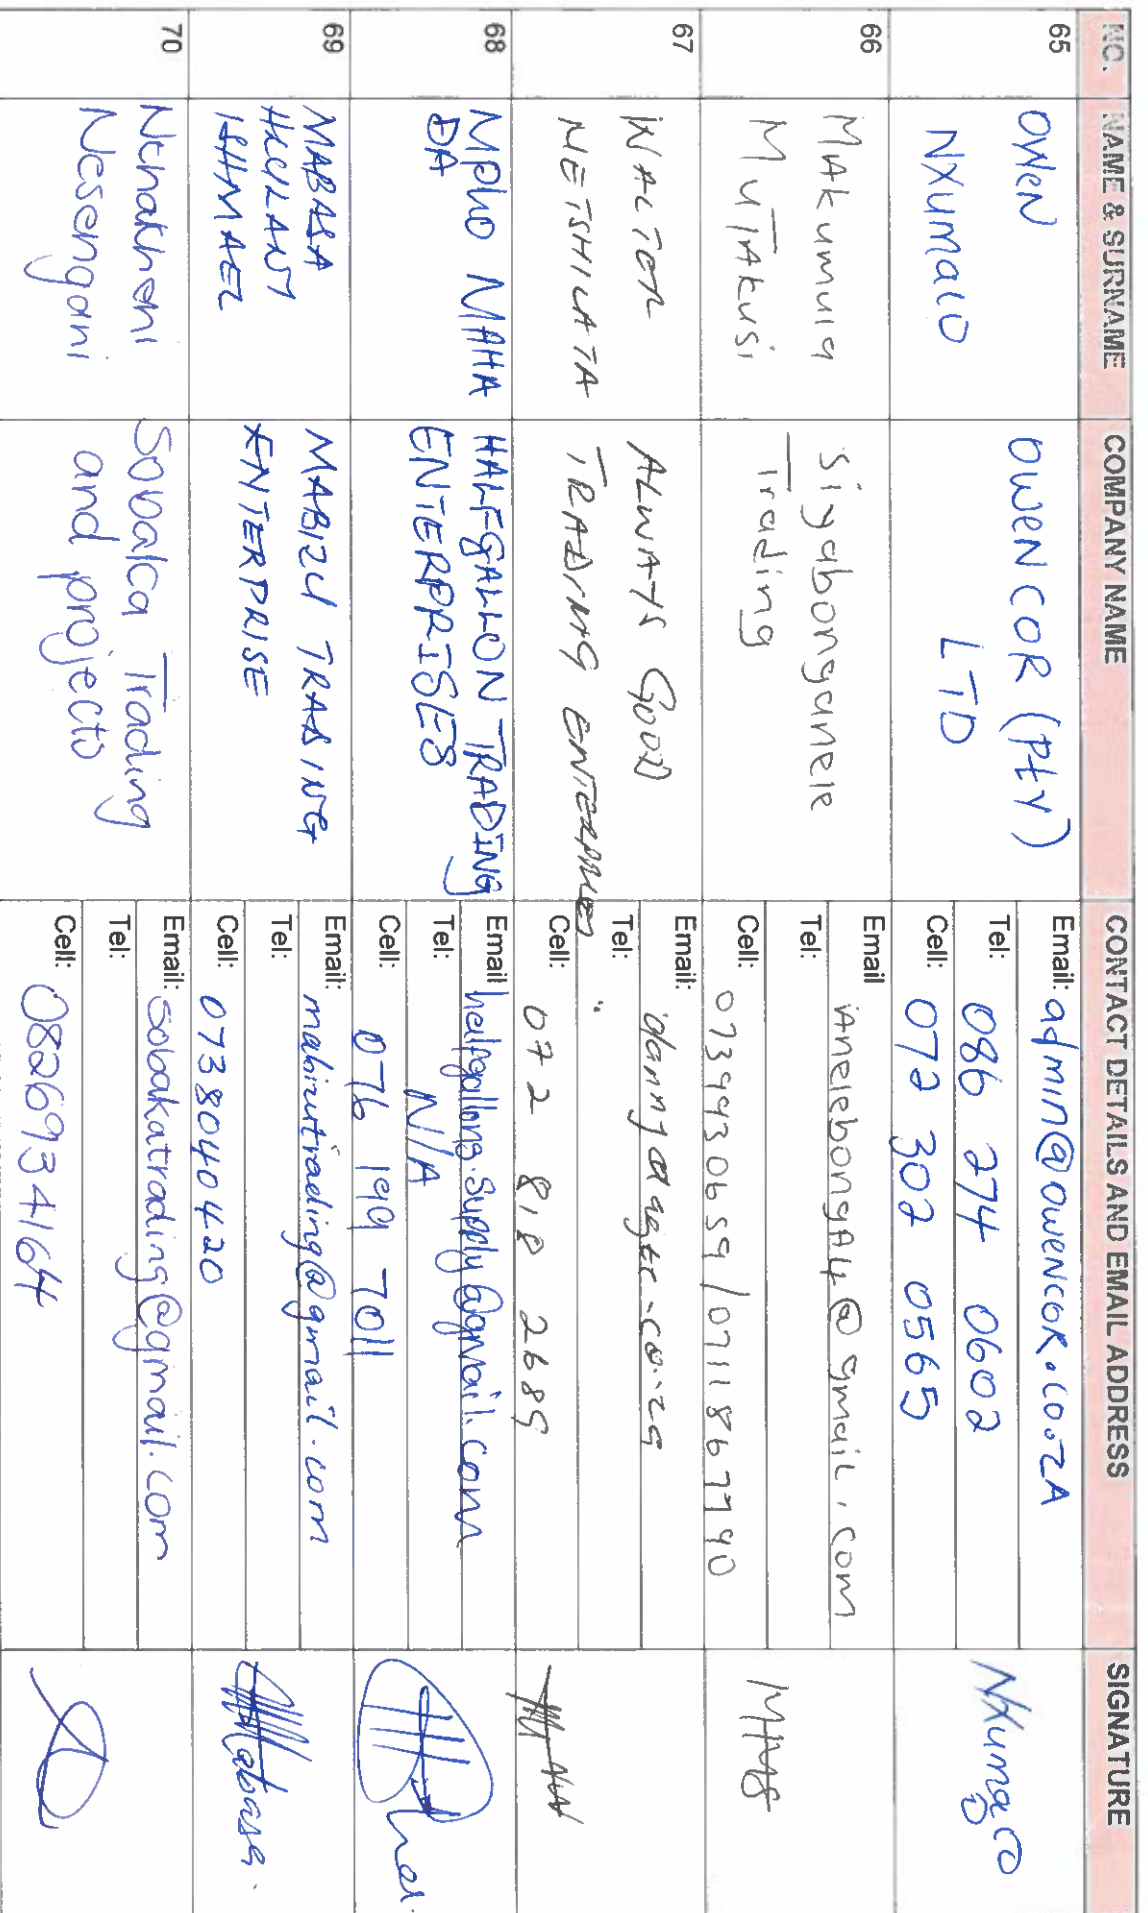 NO. NAME & SURNAME COMPANY NAME CONTACT DETAILS AND EMAIL ADDRESS SIGNATURE
65
OWEN
NXUMALO
OWENCOR (PtY)
LTD
Email: admin@owencoR.co.zA
Tel: 086 274 0602
Cell: 072 302 0565
Nxumalo
66
MAkumula
MuTAkusi
Siyabonganele
Trading
Email iAnelebongA4@gmail.com
Tel:
Cell: 0739930659/0711867790
67
WALTER
NETSHILATA
ALWAYS GOOD
TRADING ENTERPRISES
Email:
Tel:
Cell: 072 818 2689
68
Mpho MAHA
DA
HALFGALLON TRADING
ENTERPRISES
Email: halfgallons.Supply@gmail.com
Tel: N/A
Cell: 076 199 7011
69
MABASA
HLULANI
ISHMAEL
MABIZU TRADING
ENTERPRISE
Email: mabizutrading@gmail.com
Tel:
Cell: 0738040420
Mabasa.
70
Nthakheni
Nesengani
Sobaka Trading
and projects
Email: sobakatrading@gmail.com
Tel:
Cell: 0826934164